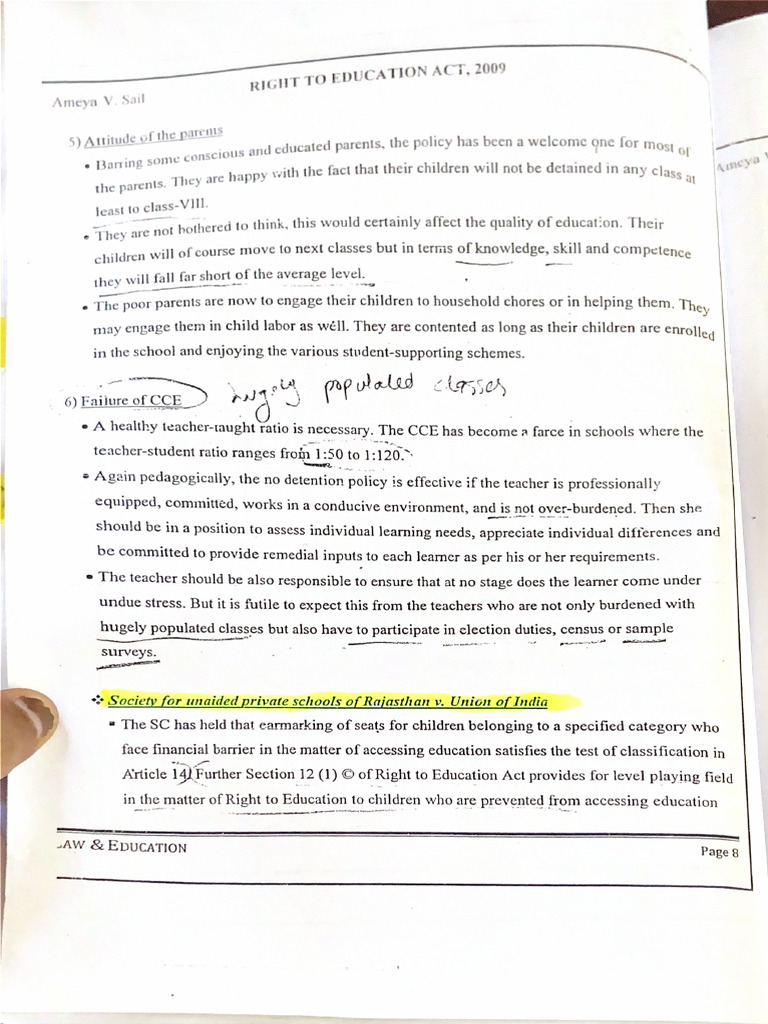 Ameya V. Sail
RIGHT TO EDUCATION ACT, 2009
5) Attitude of the parents
• Barring some conscious and educated parents, the policy has been a welcome one for most of
the parents. They are happy with the fact that their children will not be detained in any class at
least to class-VIII.
• They are not bothered to think, this would certainly affect the quality of education. Their
children will of course move to next classes but in terms of knowledge, skill and competence
they will fall far short of the average level.
• The poor parents are now to engage their children to household chores or in helping them. They
may engage them in child labor as well. They are contented as long as their children are enrolled
in the school and enjoying the various student-supporting schemes.
6) Failure of CCE hugely populated classes
• A healthy teacher-taught ratio is necessary. The CCE has become a farce in schools where the
teacher-student ratio ranges from 1:50 to 1:120.
• Again pedagogically, the no detention policy is effective if the teacher is professionally
equipped, committed, works in a conducive environment, and is not over-burdened. Then she
should be in a position to assess individual learning needs, appreciate individual differences and
be committed to provide remedial inputs to each learner as per his or her requirements.
• The teacher should be also responsible to ensure that at no stage does the learner come under
undue stress. But it is futile to expect this from the teachers who are not only burdened with
hugely populated classes but also have to participate in election duties, census or sample
surveys.
❖ Society for unaided private schools of Rajasthan v. Union of India
▪ The SC has held that earmarking of seats for children belonging to a specified category who
face financial barrier in the matter of accessing education satisfies the test of classification in
Article 14. Further Section 12 (1) © of Right to Education Act provides for level playing field
in the matter of Right to Education to children who are prevented from accessing education
LAW & EDUCATION
Page 8
Ameya